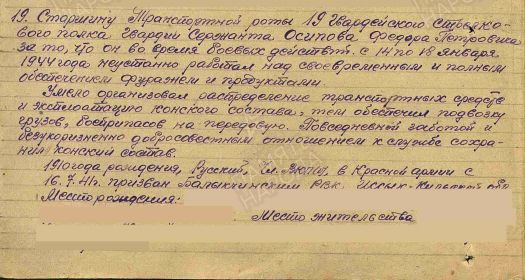 19. Старшину Транспортной роты 19 Гвардейского Стрелко-
вого полка Гвардии Сержанта Осипова Федора Петровича
за то, что он во время боевых действий с 14 по 18 января
1944 года неустанно работал над своевременным и полным
обеспечением фуражем и продуктами.
Умело организовал распределение транспортных средств
и эксплоатацию конского состава, тем обеспечил подвозку
грузов, боеприпасов на передовую. Повседневной заботой и
безукоризненно добросовестным отношением к службе сохра-
нил конский состав.
1910 года рождения, Русский, чл. ВКП(б), в Красной армии с
16.7.41г. призван Балыкчинским РВК.
Место рождения:
Место жительства